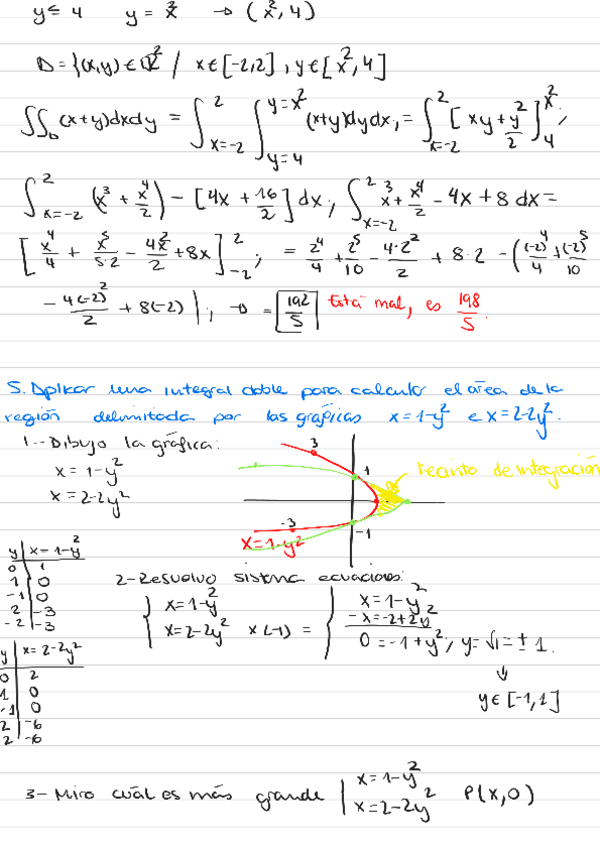 y ≤ 4   y = x²   → (x², 4)
D = {(x,y) ∈ ℝ² / x ∈ [-2,2], y ∈ [x², 4]
∬_D (x+y)dxdy = ∫_{x=-2}^{2} ∫_{y=4}^{y=x²} (x+y)dydx, = ∫_{x=-2}^{2} [xy + y²/2]_{4}^{x²};
∫_{x=-2}^{2} (x³ + x⁴/2) - [4x + 16/2] dx; ∫_{x=-2}^{2} x³ + x⁴/2 - 4x + 8 dx =
[x⁴/4 + x⁵/5·2 - 4x²/2 + 8x]_{-2}^{2}; = 2⁴/4 + 2⁵/10 - 4·2²/2 + 8·2 - ((-2)⁴/4 + (-2)⁵/10
- 4(-2)²/2 + 8(-2)); → = 192/5 Está mal, es 198/5.
5. Aplicar una integral doble para calcular el área de la
región delimitada por las gráficas x = 1-y² e x = 2-2y².
1.- Dibujo la gráfica:
x = 1-y²
x = 2-2y²
3
1
recinto de integración
-3
-1
x = 1-y²
y | x = 1-y²
0 | 1
1 | 0
-1 | 0
2 | -3
-2 | -3
2- Resuelvo sistema ecuaciones:
{ x = 1-y²   { x = 1-y²
x = 2-2y²   x(-1) =   -x = -2+2y²
0 = -1+y²; y = √1 = ± 1.
↓
y ∈ [-1,1]
y | x = 2-2y²
0 | 2
1 | 0
-1 | 0
2 | -6
2 | -6
3- Miro cuál es más grande | x = 1-y²
x = 2-2y²   P(x,0)